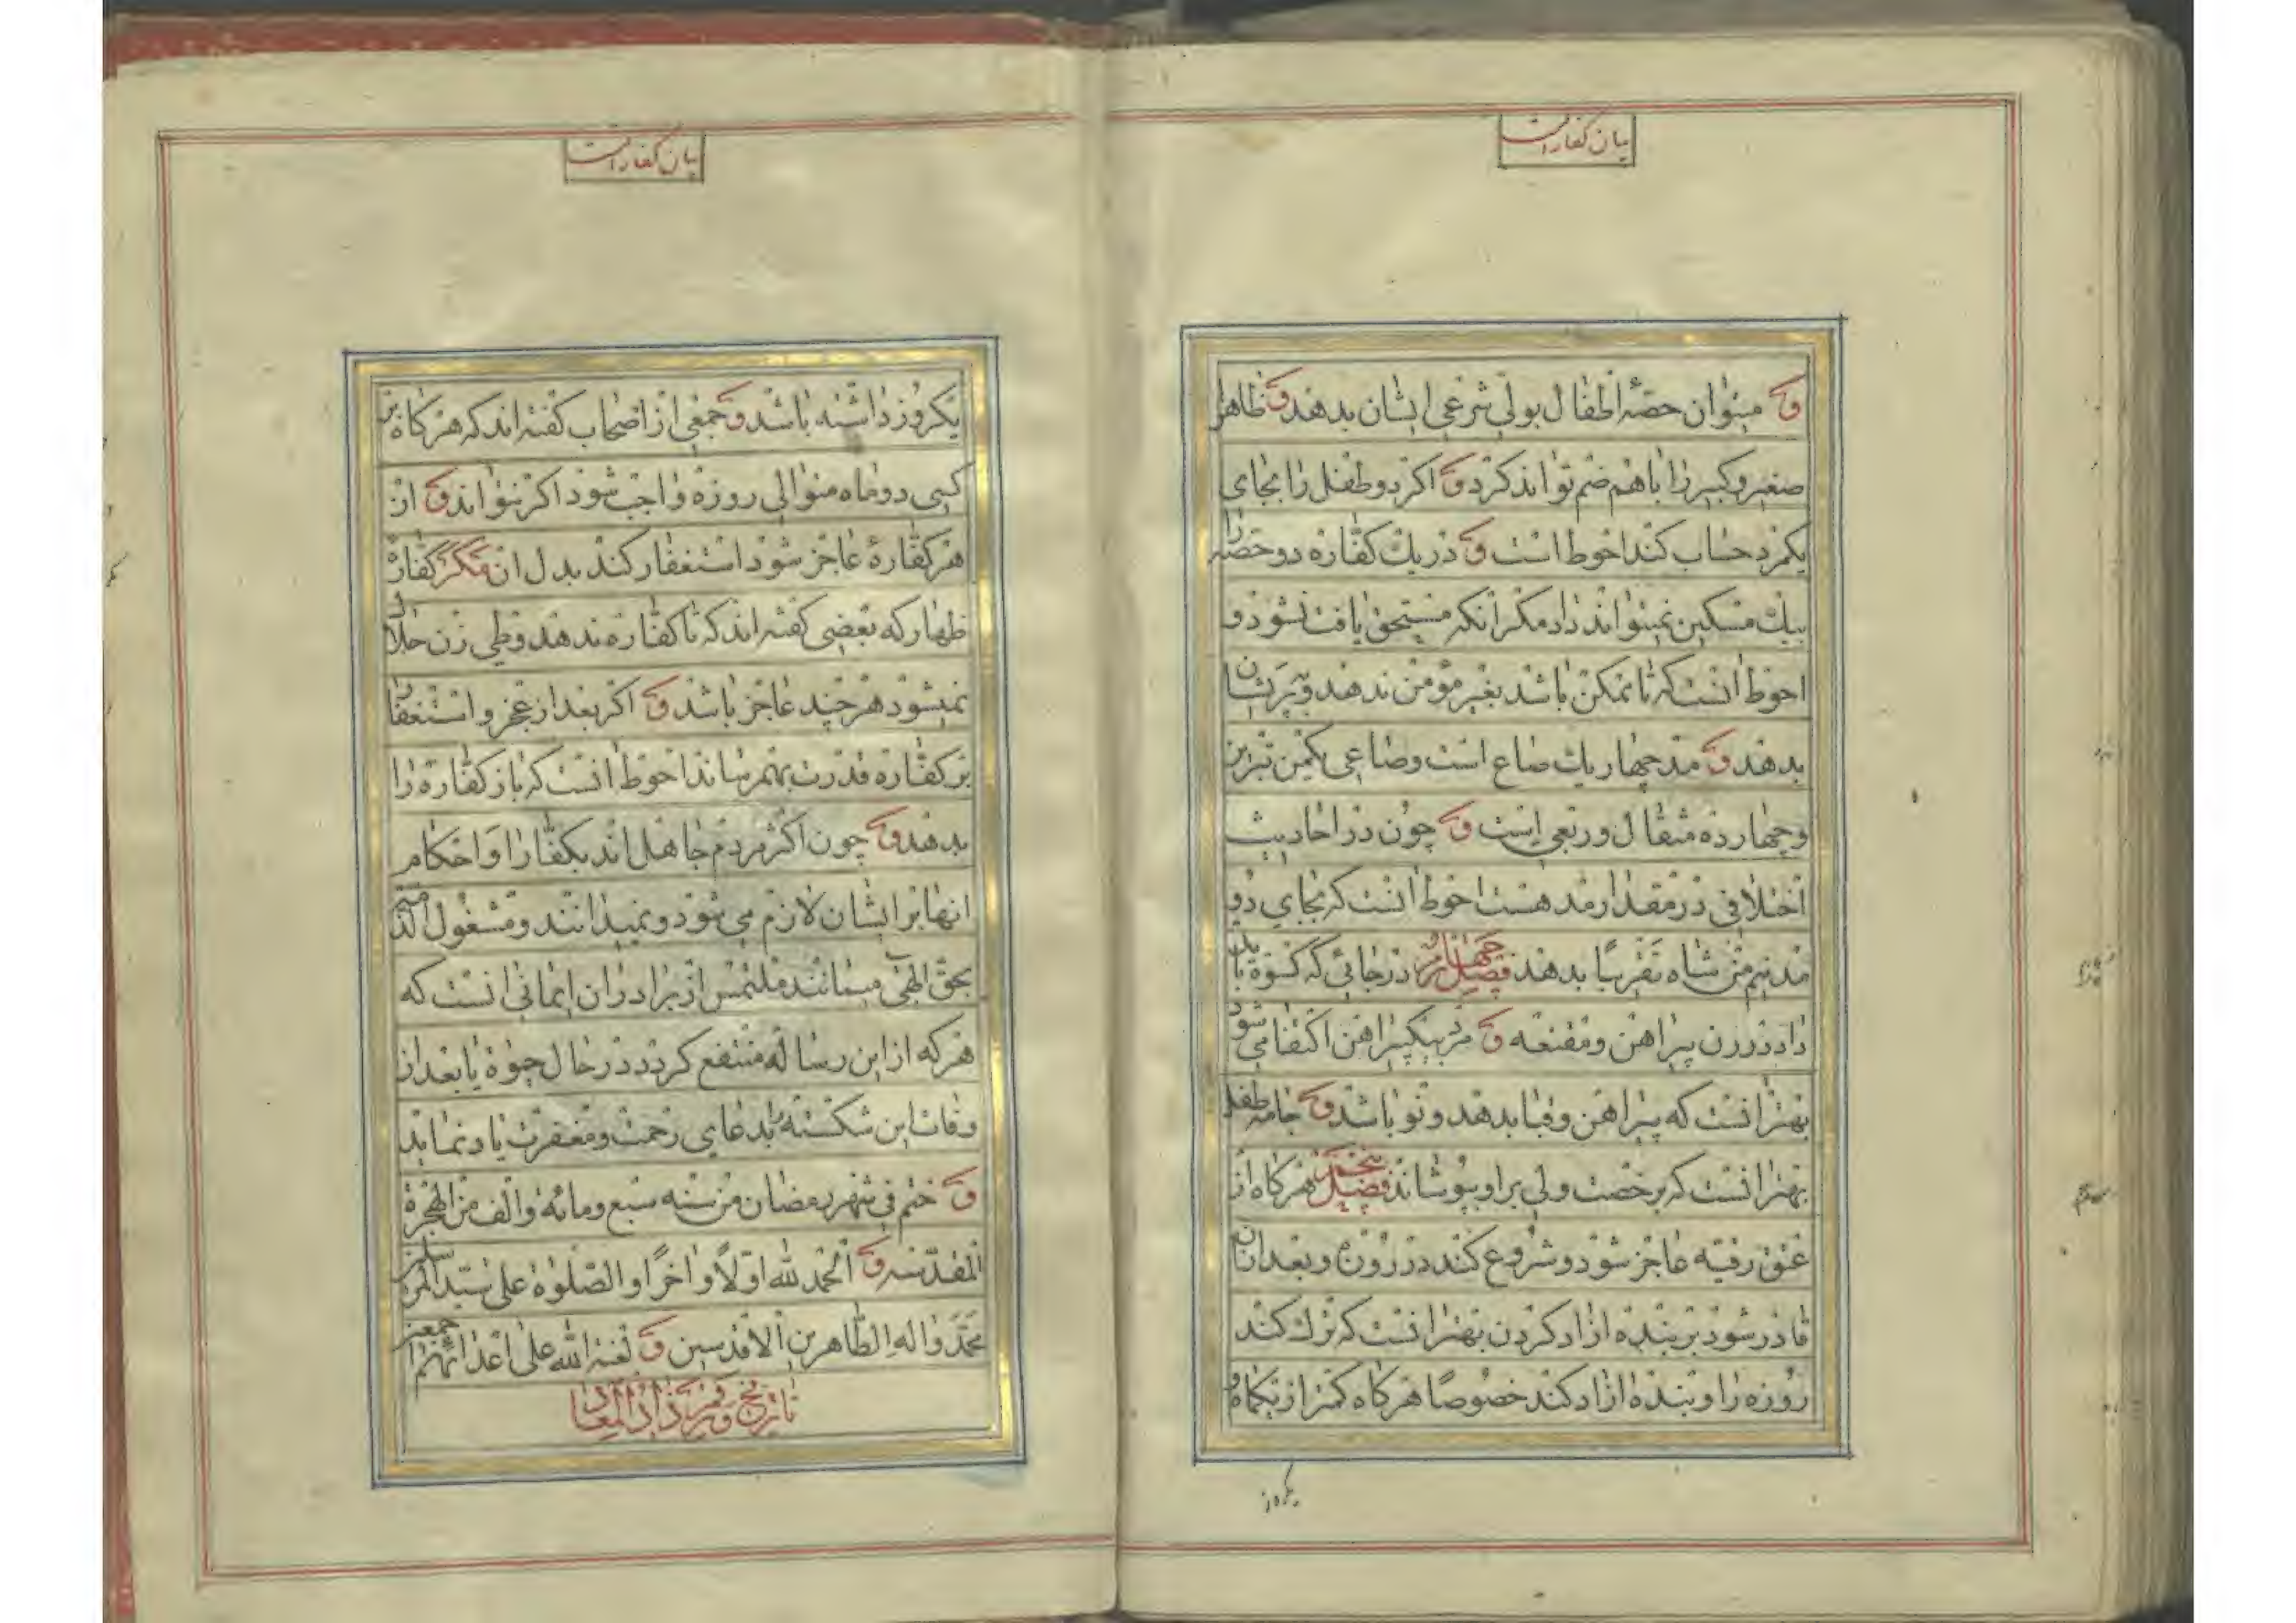 بیان کفارات
و میتوان حصّهٔ اطفال بولیّ شرعی ایشان بدهند و ظاهرا
صغیر و کبیر را با هم ضم تواند کرد و اکر دو طفل را بجای
یکمرد حساب کند احوط است و در یك کفّاره دو حصّه را
بیك مسکین نمیتواند داد مکر آنکه مستحق یافت نشود و
احوط آنست که تا ممکن باشد بغیر مؤمن ندهند و بپریشان
بدهند و مد چهار یك صاع است و صاعی یکمن تبریز
و چهارده مثقال و ربعی است و چون در احادیث
اختلافی در مقدار مد هست احوط آنست که بجای دو
مد نیم من شاه تقریبًا بدهند فصل چهارم در جائی که کسوة باید
داد در زن پیراهن و مقنعه و مرد بیکپیراهن اکتفا می شود
بهتر آنست که پیراهن و قبا بدهند و نو باشد و جامه طفل
بهتر آنست که برخصت ولی بر او بپوشاند فصل پنجم هرکاه از
عتق رقبه عاجز شود و شروع کند در روزه و بعد از آن
قادر شود بر بنده ازاد کردن بهتر آنست که ترك کند
روزه را و بنده ازاد کند خصوصًا هرکاه کمتر از یکماه و
یکروز
بیان کفارات
یکروز داشته باشد و جمعی از اصحاب کفته اند که هرکاه بر
کسی دو ماه متوالی روزه واجب شود اکر نتواند و از
هر کفّارهٔ عاجز شود استغفار کند بدل ان مکر کفّارهٔ
ظهار که بعضی کفته اند که تا کفّاره ندهد وطی زن حلال
نمیشود هر چند عاجز باشد و اکر بعد از عجز و استغفار
بر کفّاره قدرت بهم رساند احوط آنست که باز کفّاره را
بدهد و چون اکثر مردم جاهل اند بکفّارات و احکام
انها بر ایشان لازم می شود و نمیدانند و مشغول الذمه
بحق الهی میمانند ملتمس از برادران ایمانی انست که
هر که از این رساله منتفع کردد در حال حیوة یا بعد از
وفات این شکسته را بدعای رحمت و مغفرت یاد نماید
و ختم فی شهر رمضان من سنه سبع و مائه و الف من الهجرة
المقدّسه و الحمد لله اولًا و اخرًا و الصّلوة علی سیّد المرسلین
محمّد و اله الطّاهرین الاقدسین و لعنة الله علی اعدائهم اجمعین
تاریخ وقف زاد المعاد